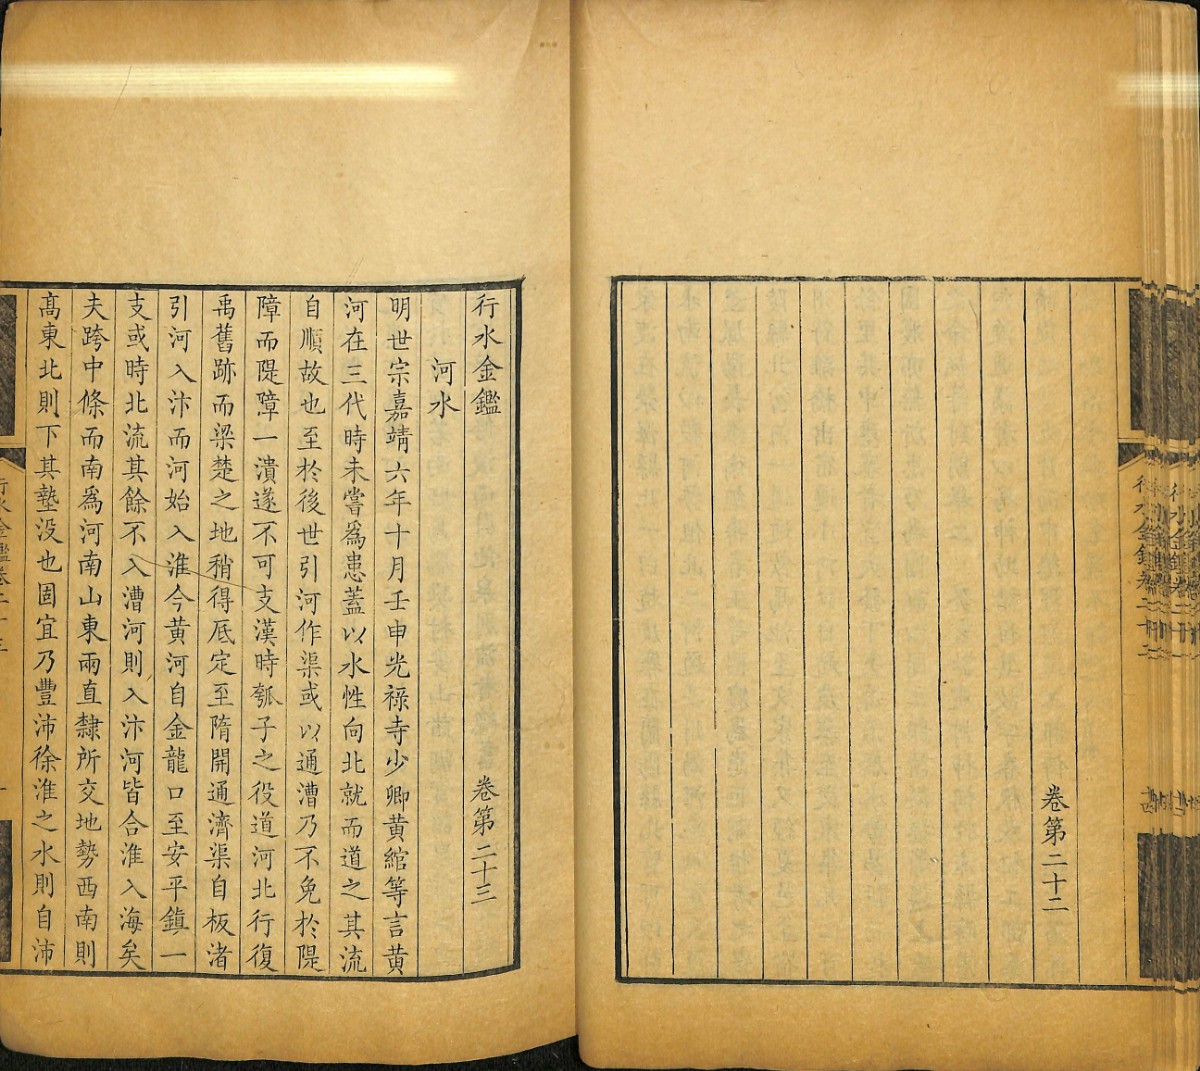 卷第二十二
行水金鑑　卷第二十三
河水
明世宗嘉靖六年十月壬申光祿寺少卿黃綰等言黃
河在三代時未嘗爲患蓋以水性向北就而道之其流
自順故也至於後世引河作渠或以通漕乃不免於隄
障而隄障一潰遂不可支漢時瓠子之役道河北行復
禹舊跡而梁楚之地稍得底定至隋開通濟渠自板渚
引河入汴而河始入淮今黃河自金龍口至安平鎮一
支或時北流其餘不入漕河則入汴河皆合淮入海矣
夫跨中條而南爲河南山東兩直隸所交地勢西南則
高東北則下其墊没也固宜乃豐沛徐淮之水則自沛